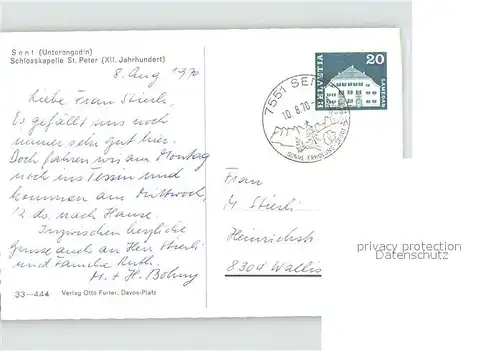 Sent (Unterengadin)
Schlosskapelle St. Peter (XII. Jahrhundert)
8. Aug 1970
Liebe Frau Stierli,
Es gefällt uns noch
immer sehr gut hier.
Doch fahren wir am Montag
noch ins Tessin und
kommen am Mittwoch,
12 ds. nach Hause.
Inzwischen herzliche
Grüsse auch an Hrn Stierli
und Familie Ruth.
M. + H. Böhny
33-444 Verlag Otto Furter, Davos-Platz
HELVETIA
20
SAMEDAN
7551 SENT
10.8.70
Frau
M. Stierli
Heinrichst
8304 Wallis
privacy protection
Datenschutz